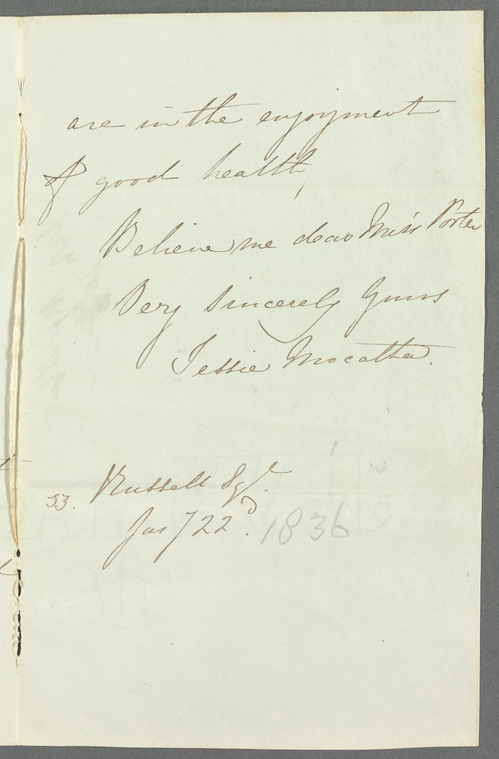 are in the enjoyment
of good health,
Believe me dear Miss Porter
Very Sincerely Yours
Jessie Mocatta.
53. Russell Sqe.
Jany 22d. 1836